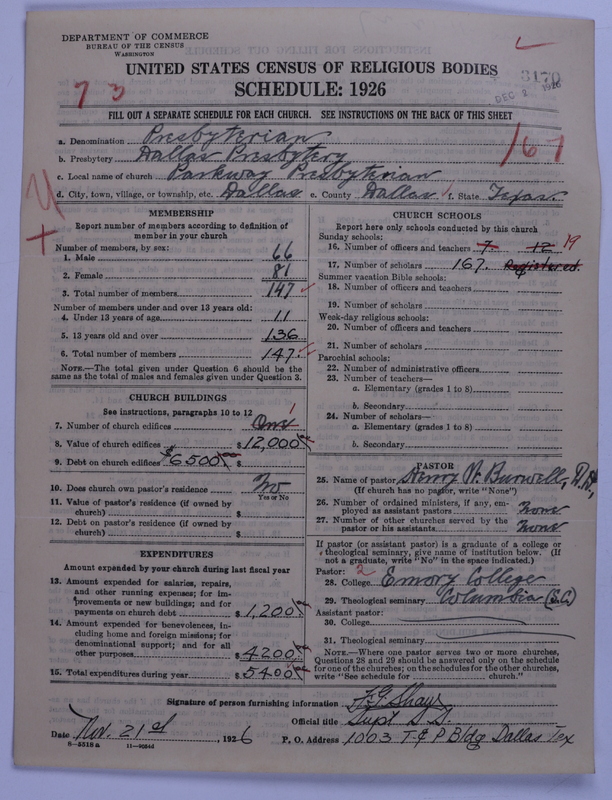 DEPARTMENT OF COMMERCE
BUREAU OF THE CENSUS
WASHINGTON
UNITED STATES CENSUS OF RELIGIOUS BODIES
SCHEDULE: 1926
7 3
3170
DEC 2 1926
FILL OUT A SEPARATE SCHEDULE FOR EACH CHURCH. SEE INSTRUCTIONS ON THE BACK OF THIS SHEET
167
a. Denomination Presbyterian
b. Presbytery Dallas Presbytery
c. Local name of church Parkway Presbyterian
d. City, town, village, or township, etc. Dallas e. County Dallas f. State Texas.
MEMBERSHIP
Report number of members according to definition of
member in your church
Number of members, by sex:
1. Male 66
2. Female 81
3. Total number of members 147
Number of members under and over 13 years old:
4. Under 13 years of age 11
5. 13 years old and over 136
6. Total number of members 147
NOTE.—The total given under Question 6 should be the
same as the total of males and females given under Question 3.
CHURCH BUILDINGS
See instructions, paragraphs 10 to 12
7. Number of church edifices One 1
8. Value of church edifices $ 12,000
9. Debt on church edifices $6500 $
10. Does church own pastor's residence No
Yes or No
11. Value of pastor's residence (if owned by
church) $
12. Debt on pastor's residence (if owned by
church) $
EXPENDITURES
Amount expended by your church during last fiscal year
13. Amount expended for salaries, repairs,
and other running expenses; for im-
provements or new buildings; and for
payments on church debt $ 1,200
14. Amount expended for benevolences, in-
cluding home and foreign missions; for
denominational support; and for all
other purposes $ 4200
15. Total expenditures during year $ 5400
CHURCH SCHOOLS
Report here only schools conducted by this church
Sunday schools:
16. Number of officers and teachers 7. 12 19
17. Number of scholars 167. Registered.
Summer vacation Bible schools:
18. Number of officers and teachers
19. Number of scholars
Week-day religious schools:
20. Number of officers and teachers
21. Number of scholars
Parochial schools:
22. Number of administrative officers
23. Number of teachers—
a. Elementary (grades 1 to 8)
b. Secondary
24. Number of scholars—
a. Elementary (grades 1 to 8)
b. Secondary
PASTOR
25. Name of pastor Henry W. Burwell,
(If church has no pastor, write "None")
26. Number of ordained ministers, if any, em-
ployed as assistant pastors None
27. Number of other churches served by the
pastor or his assistants None
If pastor (or assistant pastor) is a graduate of a college or
theological seminary, give name of institution below. (If
not a graduate, write "No" in the space indicated.)
Pastor: 2
28. College Emory College
29. Theological seminary Columbia (S.C.)
Assistant pastor:
30. College
31. Theological seminary
NOTE.—Where one pastor serves two or more churches,
Questions 28 and 29 should be answered only on the schedule
for one of the churches; on the schedules for the other churches,
write "See schedule for church."
Signature of person furnishing information
Official title Supt S.S.
Date Nov. 21st, 1926 P. O. Address 1003 T & P Bldg Dallas Tex
8—5518a 11—9054d